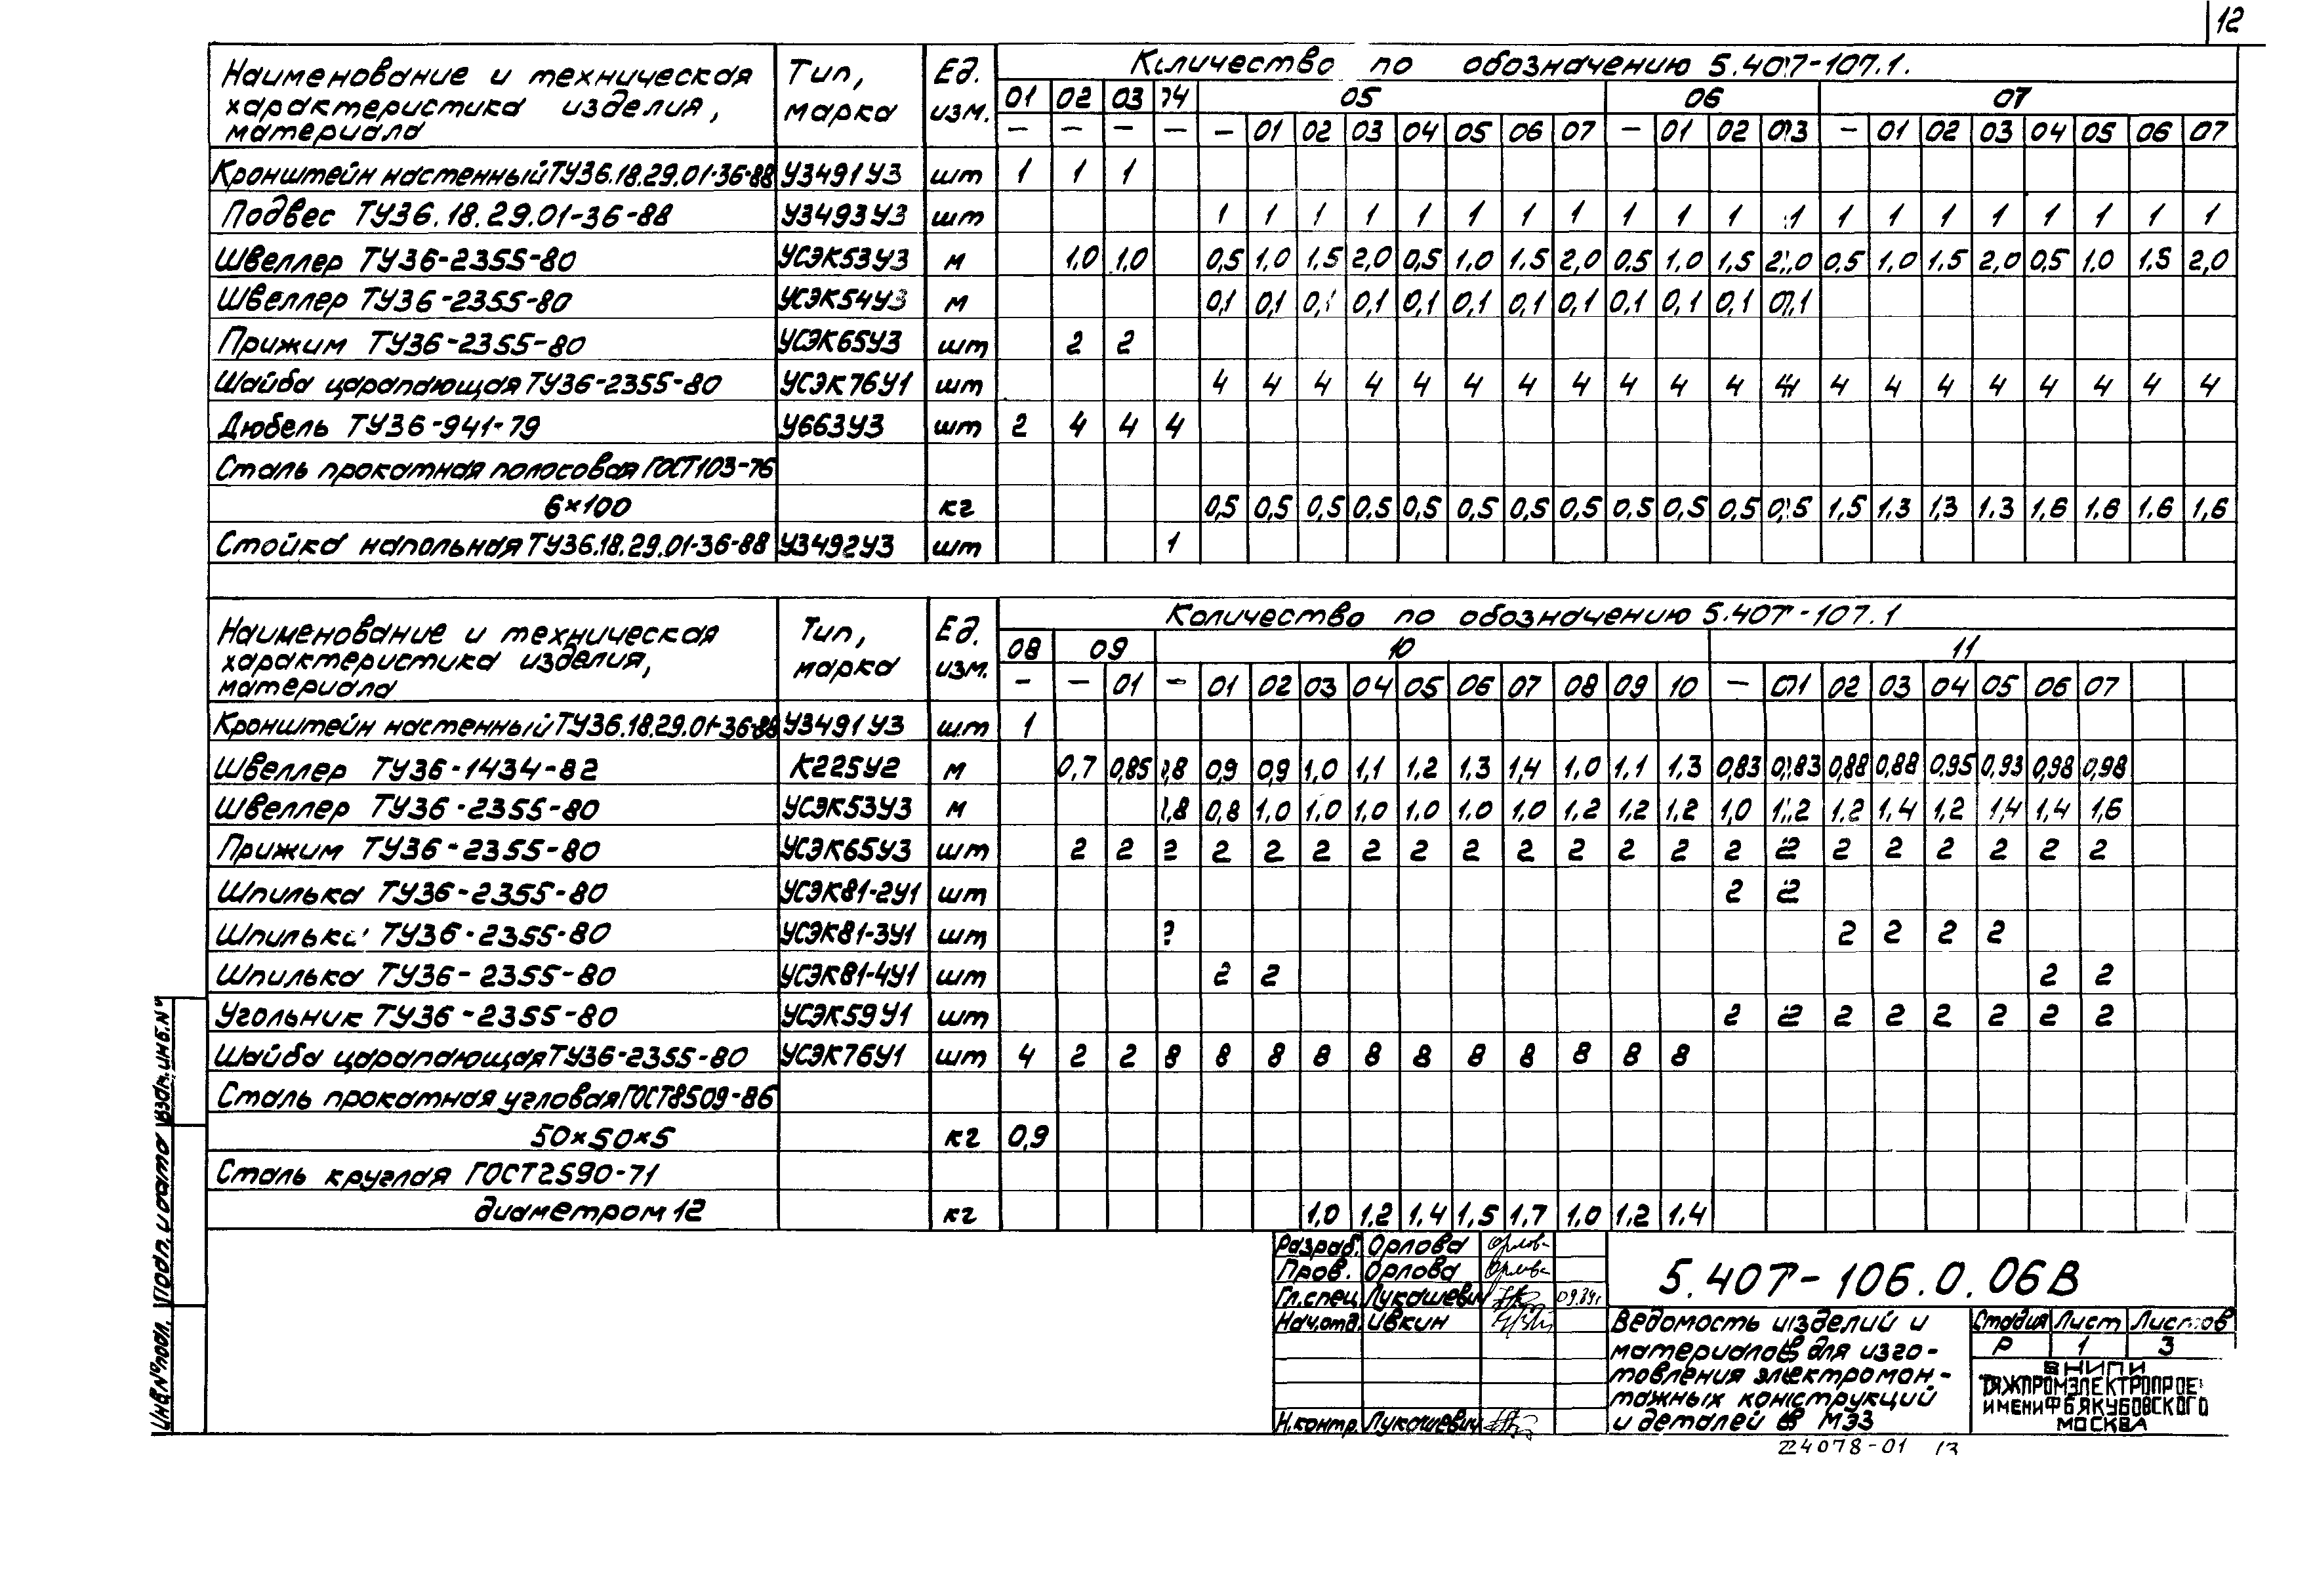 12
Наименование и техническая характеристика изделия, материала Тип, марка Ед. изм. Количество по обозначению 5.407-107.1.
01 02 03 04 05 06 07
— — — — — 01 02 03 04 05 06 07 — 01 02 03 — 01 02 03 04 05 06 07
Кронштейн настенный ТУ36.18.29.01-36-88 У3491У3 шт 1 1 1
Подвес ТУ36.18.29.01-36-88 У3493У3 шт 1 1 1 1 1 1 1 1 1 1 1 1 1 1 1 1 1 1 1 1
Швеллер ТУ36-2355-80 УСЭК53У3 м 1,0 1,0 0,5 1,0 1,5 2,0 0,5 1,0 1,5 2,0 0,5 1,0 1,5 2,0 0,5 1,0 1,5 2,0 0,5 1,0 1.5 2,0
Швеллер ТУ36-2355-80 УСЭК54У3 м 0,1 0,1 0,1 0,1 0,1 0,1 0,1 0,1 0,1 0,1 0,1 0,1
Прижим ТУ36-2355-80 УСЭК65У3 шт 2 2
Шайба царапающая ТУ36-2355-80 УСЭК76У1 шт 4 4 4 4 4 4 4 4 4 4 4 4 4 4 4 4 4 4 4 4
Дюбель ТУ36-941-79 У663У3 шт 2 4 4 4
Сталь прокатная полосовая ГОСТ103-76
6×100 кг 0,5 0,5 0,5 0,5 0,5 0,5 0,5 0,5 0,5 0,5 0,5 0,5 1,5 1,3 1,3 1,3 1,6 1,6 1,6 1,6
Стойка напольная ТУ36.18.29.01-36-88 У3492У3 шт 1
Наименование и техническая характеристика изделия, материала Тип, марка Ед. изм. Количество по обозначению 5.407-107.1
08 09 10 11
— — 01 — 01 02 03 04 05 06 07 08 09 10 — 01 02 03 04 05 06 07
Кронштейн настенный ТУ36.18.29.01-36-88 У3491У3 шт 1
Швеллер ТУ36-1434-82 К225У2 м 0,7 0,85 0,8 0,9 0,9 1,0 1,1 1,2 1,3 1,4 1,0 1,1 1,3 0,83 0,83 0,88 0,88 0,95 0,93 0,98 0,98
Швеллер ТУ36-2355-80 УСЭК53У3 м 0,8 0,8 1,0 1,0 1,0 1,0 1,0 1,0 1,2 1,2 1,2 1,0 1,2 1,2 1,4 1,2 1,4 1,4 1,6
Прижим ТУ36-2355-80 УСЭК65У3 шт 2 2 2 2 2 2 2 2 2 2 2 2 2 2 2 2 2 2 2 2 2
Шпилька ТУ36-2355-80 УСЭК81-2У1 шт 2 2
Шпилька ТУ36-2355-80 УСЭК81-3У1 шт 2 2 2 2 2
Шпилька ТУ36-2355-80 УСЭК81-4У1 шт 2 2 2 2
Угольник ТУ36-2355-80 УСЭК59У1 шт 2 2 2 2 2 2 2 2
Шайба царапающая ТУ36-2355-80 УСЭК76У1 шт 4 2 2 8 8 8 8 8 8 8 8 8 8 8
Сталь прокатная угловая ГОСТ8509-86
50×50×5 кг 0,9
Сталь круглая ГОСТ2590-71
диаметром 12 кг 1,0 1,2 1,4 1,5 1,7 1,0 1,2 1,4
Разраб. Орлова
Пров. Орлова
Гл.спец. Лукашевич
Нач.отд. Ивкин
Н.контр. Лукашевич
5.407-106.0.06В
Ведомость изделий и
материалов для изго-
товления электромон-
тажных конструкций
и деталей в МЭЗ
Стадия Лист Листов
Р 1 3
ВНИПИ
ТЯЖПРОМЭЛЕКТРОПРОЕКТ
ИМЕНИ Ф Б ЯКУБОВСКОГО
МОСКВА
24078-01 13
Инв.№подл. Подп. и дата Взам.инв.№